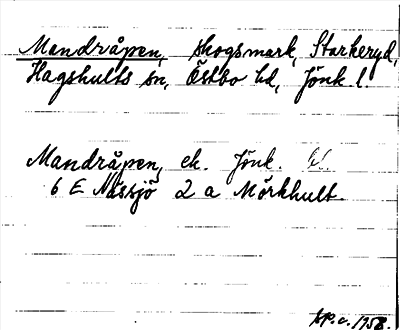 Mandråpen, skogsmark, Starkeryd,
Hagshults sn, Östbo hd, Jönk l.
Mandråpen, ek. Jönk. bl.
6 E Nässjö 2 a Mörkhult.
1958.